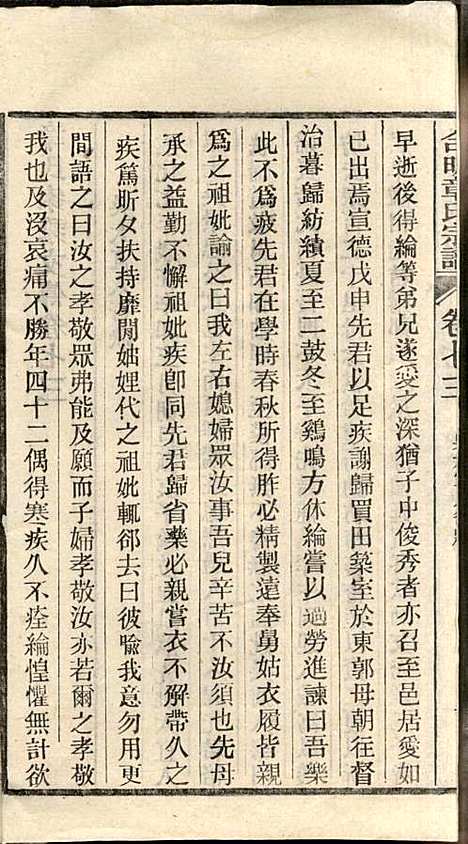 早逝後得綸等弟兄遂愛之深猶子中俊秀者亦召至邑居愛如
已出焉宣德戊申先君以足疾謝歸買田築室於東郭母朝往督
治暮歸紡績夏至二鼓冬至鷄鳴方休綸嘗以過勞進諫曰吾樂
此不爲疲先君在學時春秋所得胙必精製遠奉舅姑衣履皆親
爲之祖妣諭之曰我左右媳婦眾汝事吾兒辛苦不汝須也先母
承之益勤不懈祖妣疾卽同先君歸省藥必親嘗衣不解帶久之
疾篤昕夕扶持靡閒娣娌代之祖妣輒郤去曰彼喩我意勿用更
間語之曰汝之孝敬眾弗能及願而子婦孝敬汝亦若爾之孝敬
我也及沒哀痛不勝年四十二偶得寒疾久不痊綸惶懼無計欲